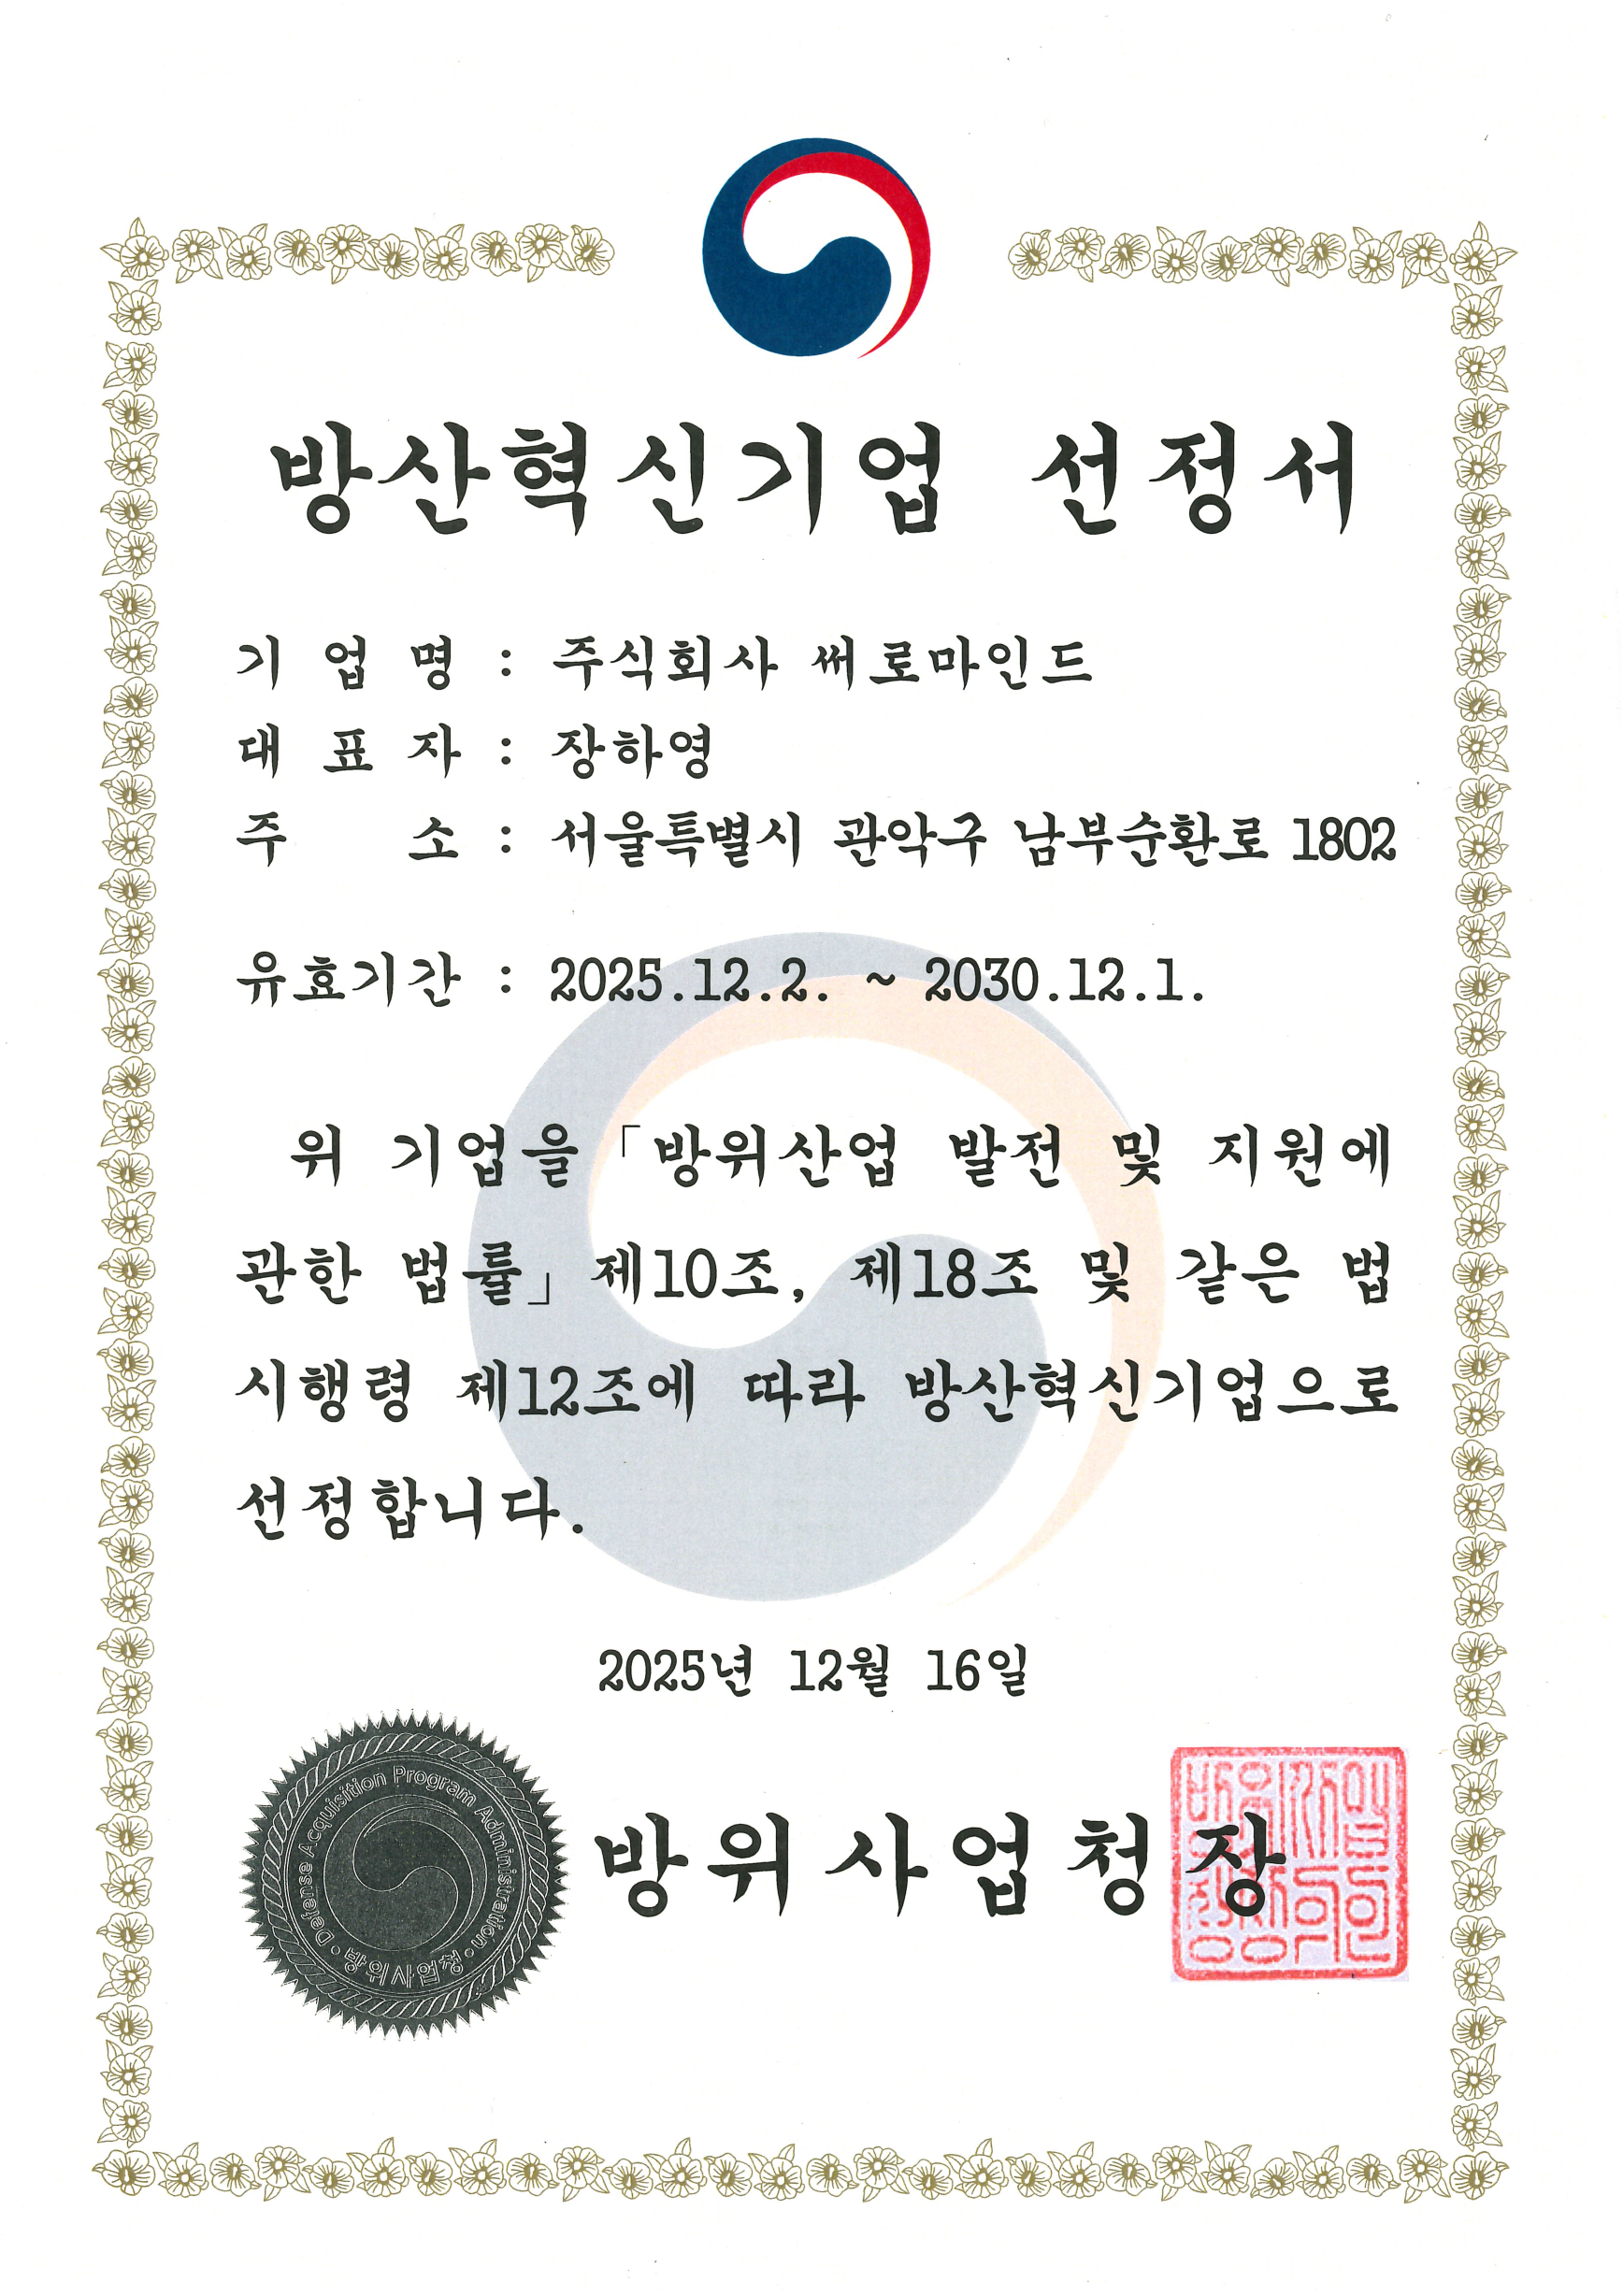 방산혁신기업 선정서
기 업 명 : 주식회사 써로마인드
대 표 자 : 장하영
주 소 : 서울특별시 관악구 남부순환로 1802
유효기간 : 2025.12.2. ~ 2030.12.1.
위 기업을 「방위산업 발전 및 지원에
관한 법률」 제10조, 제18조 및 같은 법
시행령 제12조에 따라 방산혁신기업으로
선정합니다.
2025년 12월 16일
방위사업청장
Defense Acquisition Program Administration
방위사업청